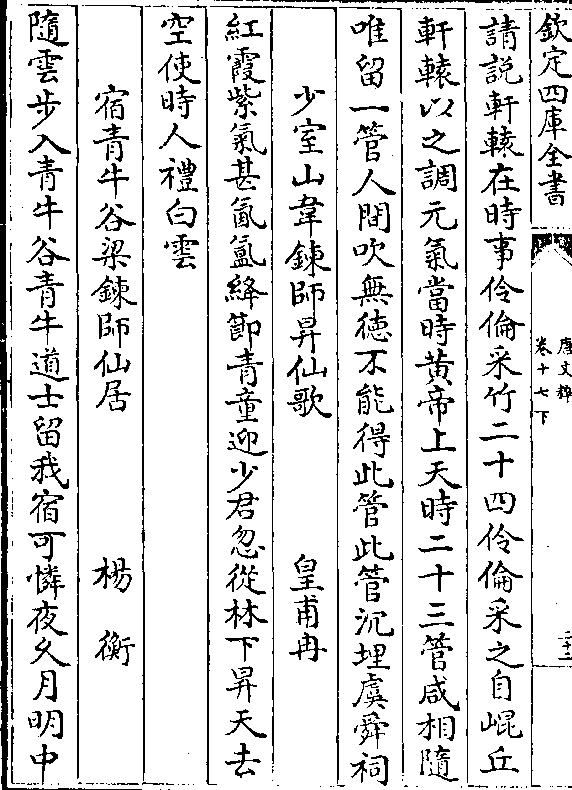 欽定四庫全書
唐文粹
卷十七下
二十二
請説軒轅在時事伶倫采竹二十四伶倫采之自崐丘
軒轅以之調元氣當時黄帝上天時二十三管咸相隨
唯留一管人間吹無徳不能得此管此管沉埋虞舜祠
少室山韋鍊師昇仙歌　皇甫冉
紅霞紫氣甚氤氲絳節青童迎少君忽從林下昇天去
空使時人禮白雲
宿青牛谷梁鍊師仙居　楊衡
隨雲步入青牛谷青牛道士留我宿可憐夜久月明中